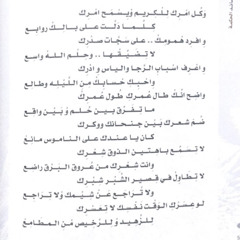 وكل أمرك للكريم ويسمح أمرك
كلما دلت على بالك روابع
وافرد همومك .. على سجات سدرك
لا تضيقها .. وحلم الله واسع
واعرف اسباب الرجا والياس وادرك
واحبك حسابك من الليله وطالع
واضح انك طال عمرك طول عمرك
ما تفرق بين حلم وبين واقع
ضم شعرك بين جنحانك ووكرك
كان يا عندك على الناموس مانع
لا تسمع باهتين الذوق شعرك
وانت شعرك من عروق البرق راضع
لا تطاول في قصير الشبر شبرك
ولا تراجع عن شيمك ولا تراجع
لو عسرك الوقت نفسك لا تعسرك
للزهيد وللرخيص من المطامع